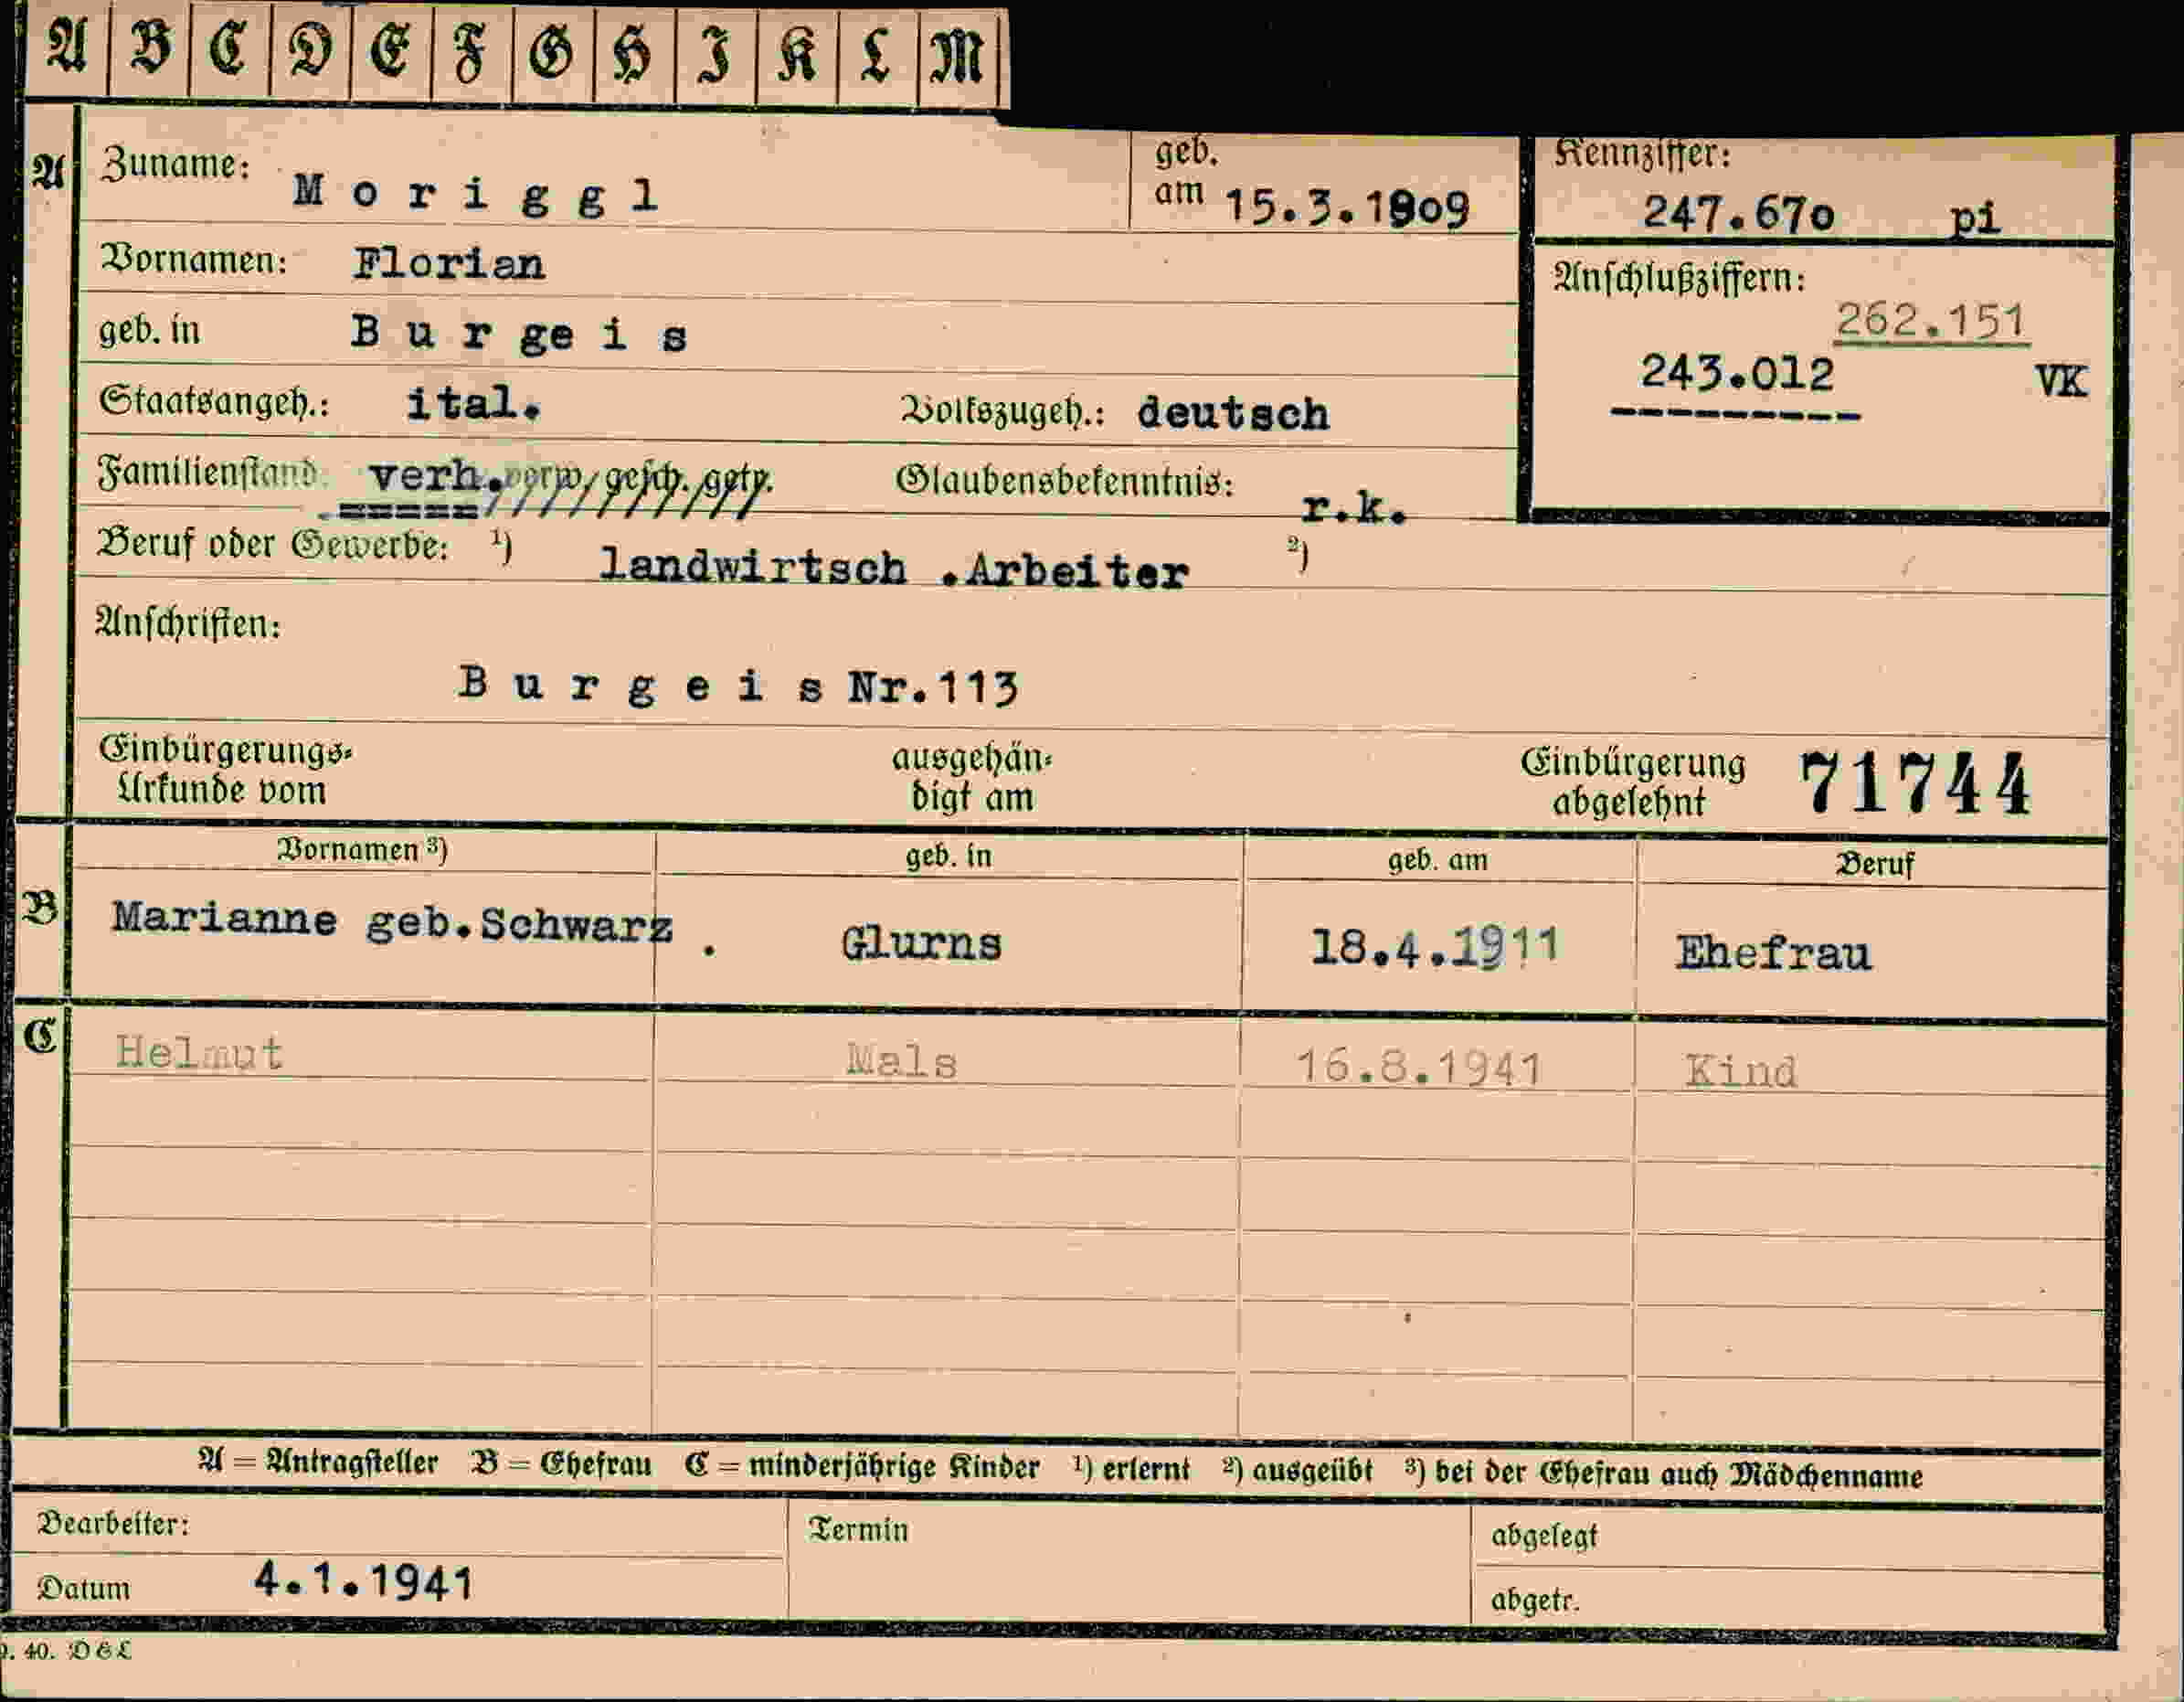 A B C D E F G H I K L M
A Zuname: Moriggl geb. am 15.3.1909 Kennziffer: 247.670 pi
Vornamen: Florian Anschlußziffern: 262.151
geb. in Burgeis 243.012 VK
Staatsangeh.: ital. Volkszugeh.: deutsch
Familienstand: verh. verw. gesch. getr. Glaubensbekenntnis: r.k.
Beruf oder Gewerbe: ¹) landwirtsch .Arbeiter ²)
Anschriften:
Burgeis Nr.113
Einbürgerungs- ausgehän- Einbürgerung 71744
Urkunde vom digt am abgelehnt
Vornamen ³) geb. in geb. am Beruf
B Marianne geb.Schwarz . Glurns 18.4.1911 Ehefrau
C Helmut Mals 16.8.1941 Kind
A = Antragsteller B = Ehefrau C = minderjährige Kinder ¹) erlernt ²) ausgeübt ³) bei der Ehefrau auch Mädchenname
Bearbeiter: Termin abgelegt
Datum 4.1.1941 abgetr.
40. D & L